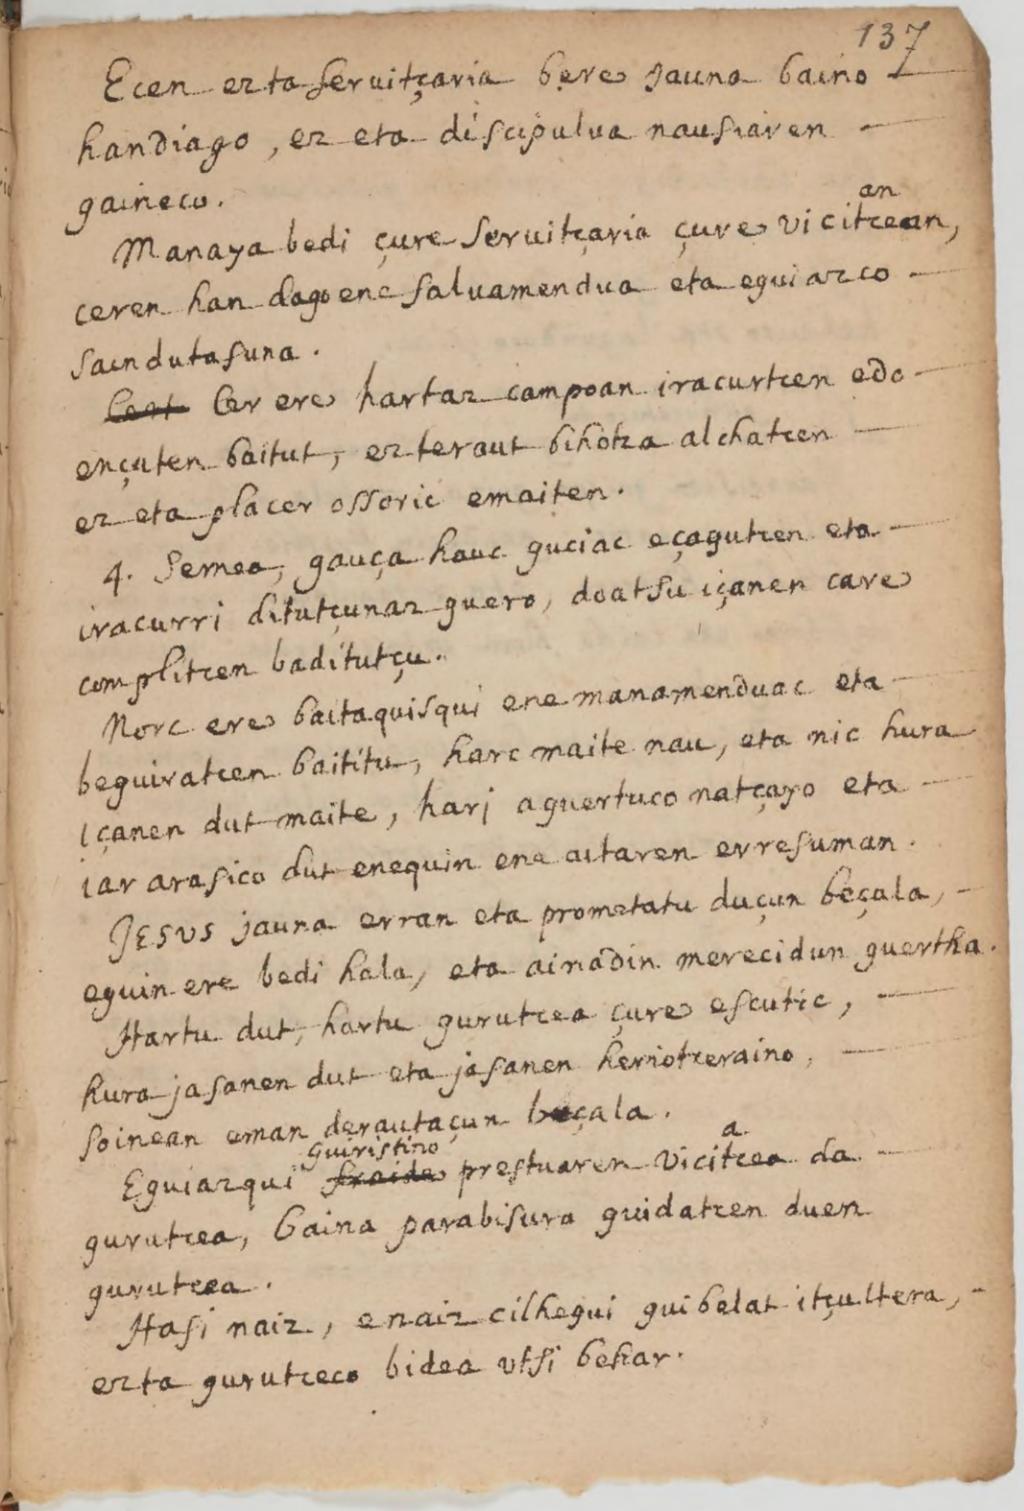 137
Ecen ezta servitçaria bere jauna baino
handiago, ez eta discipulua nausiaren
gaineco.
an
Manaya bedi çure servitçaria çure vicitcean,
ceren han dagoene salvamendua eta eguiazco
saindutasuna.
Cer ere hartaz campoan iracurtcen edo
ençuten baitut, ezteraut bihotza alchatcen
ez eta placer ossoric emaiten.
4. Semea, gauça hauc guciac eçagutcen eta
iracurri ditutçunaz guero, doatsu içanen care
complitcen baditutçu.
Norc ere baitaquisqui ene manamenduac eta
beguiratcen baititu, harc maite nau, eta nic hura
içanen dut maite, hari aguertuco natçayo eta
jar arasico dut enequin ene aitaren erresuman.
JESUS jauna erran eta prometatu duçun beçala,
eguin ere bedi hala, eta ainadin merecidun guertha.
Hartu dut, hartu gurutcea çure escutic,
hura jasanen dut eta jasanen heriotzeraino,
soinean eman derautaçun beçala.
guiristino a
Eguiazqui fraide prestuaren vicitcea da
gurutcea, baina parabisura guidatcen duen
gurutcea.
Hasi naiz, enaiz cilhegui guibelat itçultera,
ezta gurutceco bidea utsi behar.